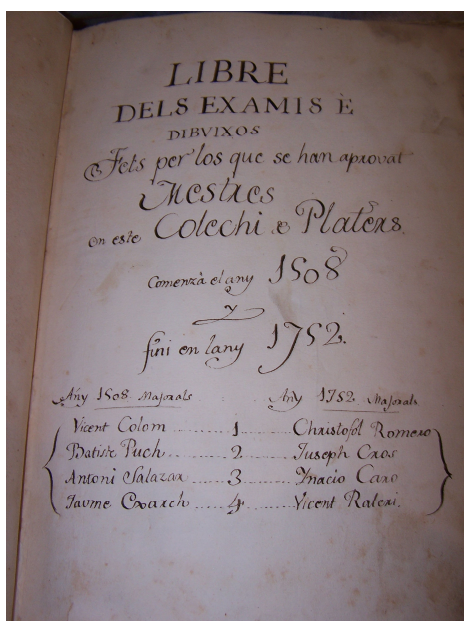 LIBRE
DELS EXAMIS È
DIBVIXOS
Fets per los que se han aprovat
Mestres
en este Colechi de Platers.
Comenzà el any 1508
y
fini en lany 1752.
Añy 1508 Majorals Añy 1752 Majorals
Vicent Colom 1 Christofol Romero
Batiste Puch 2 Juseph Cros
Antoni Salazar 3 Ynacio Caro
Jaume 4 Vicent